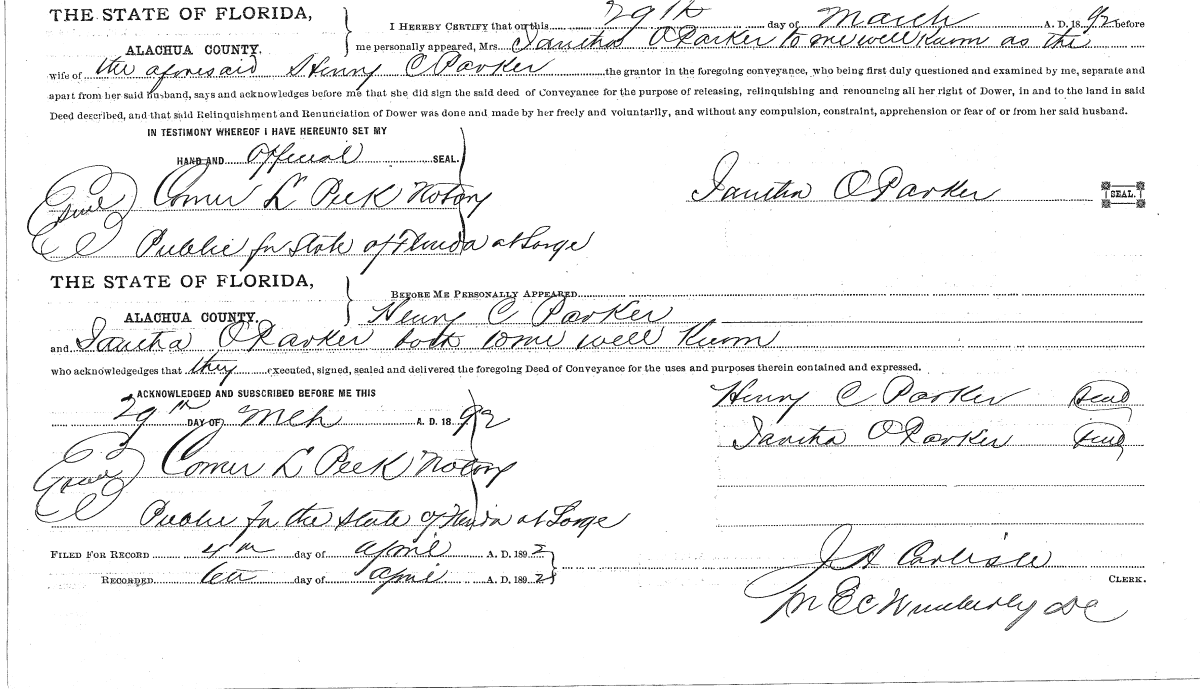 THE STATE OF FLORIDA,
ALACHUA COUNTY.
I HEREBY CERTIFY that on this 29th day of March A. D. 1892 before
me personally appeared, Mrs. Iantha O Parker to me well known as the
wife of the aforesaid Henry C Parker the grantor in the foregoing conveyance, who being first duly questioned and examined by me, separate and
apart from her said husband, says and acknowledges before me that she did sign the said deed of Conveyance for the purpose of releasing, relinquishing and renouncing all her right of Dower, in and to the land in said
Deed described, and that said Relinquishment and Renunciation of Dower was done and made by her freely and voluntarily, and without any compulsion, constraint, apprehension or fear of or from her said husband.
IN TESTIMONY WHEREOF I HAVE HEREUNTO SET MY
HAND AND Official SEAL.
Seal Comer L Peek Notary
Iantha O Parker SEAL.
Public for State of Florida at Large
THE STATE OF FLORIDA,
ALACHUA COUNTY.
BEFORE ME PERSONALLY APPEARED
Henry C Parker
and Iantha O Parker both to me well known
who acknowledgedges that they executed, signed, sealed and delivered the foregoing Deed of Conveyance for the uses and purposes therein contained and expressed.
ACKNOWLEDGED AND SUBSCRIBED BEFORE ME THIS
29th DAY OF Mch A. D. 1892
Henry C Parker Seal
Iantha O Parker Seal
Seal Comer L Peek Notary
Public for the State of Florida at Large
FILED FOR RECORD 4th day of April A. D. 1892
RECORDED 6th day of April A. D. 1892
J A Carlisle
CLERK.
Wimberly DC